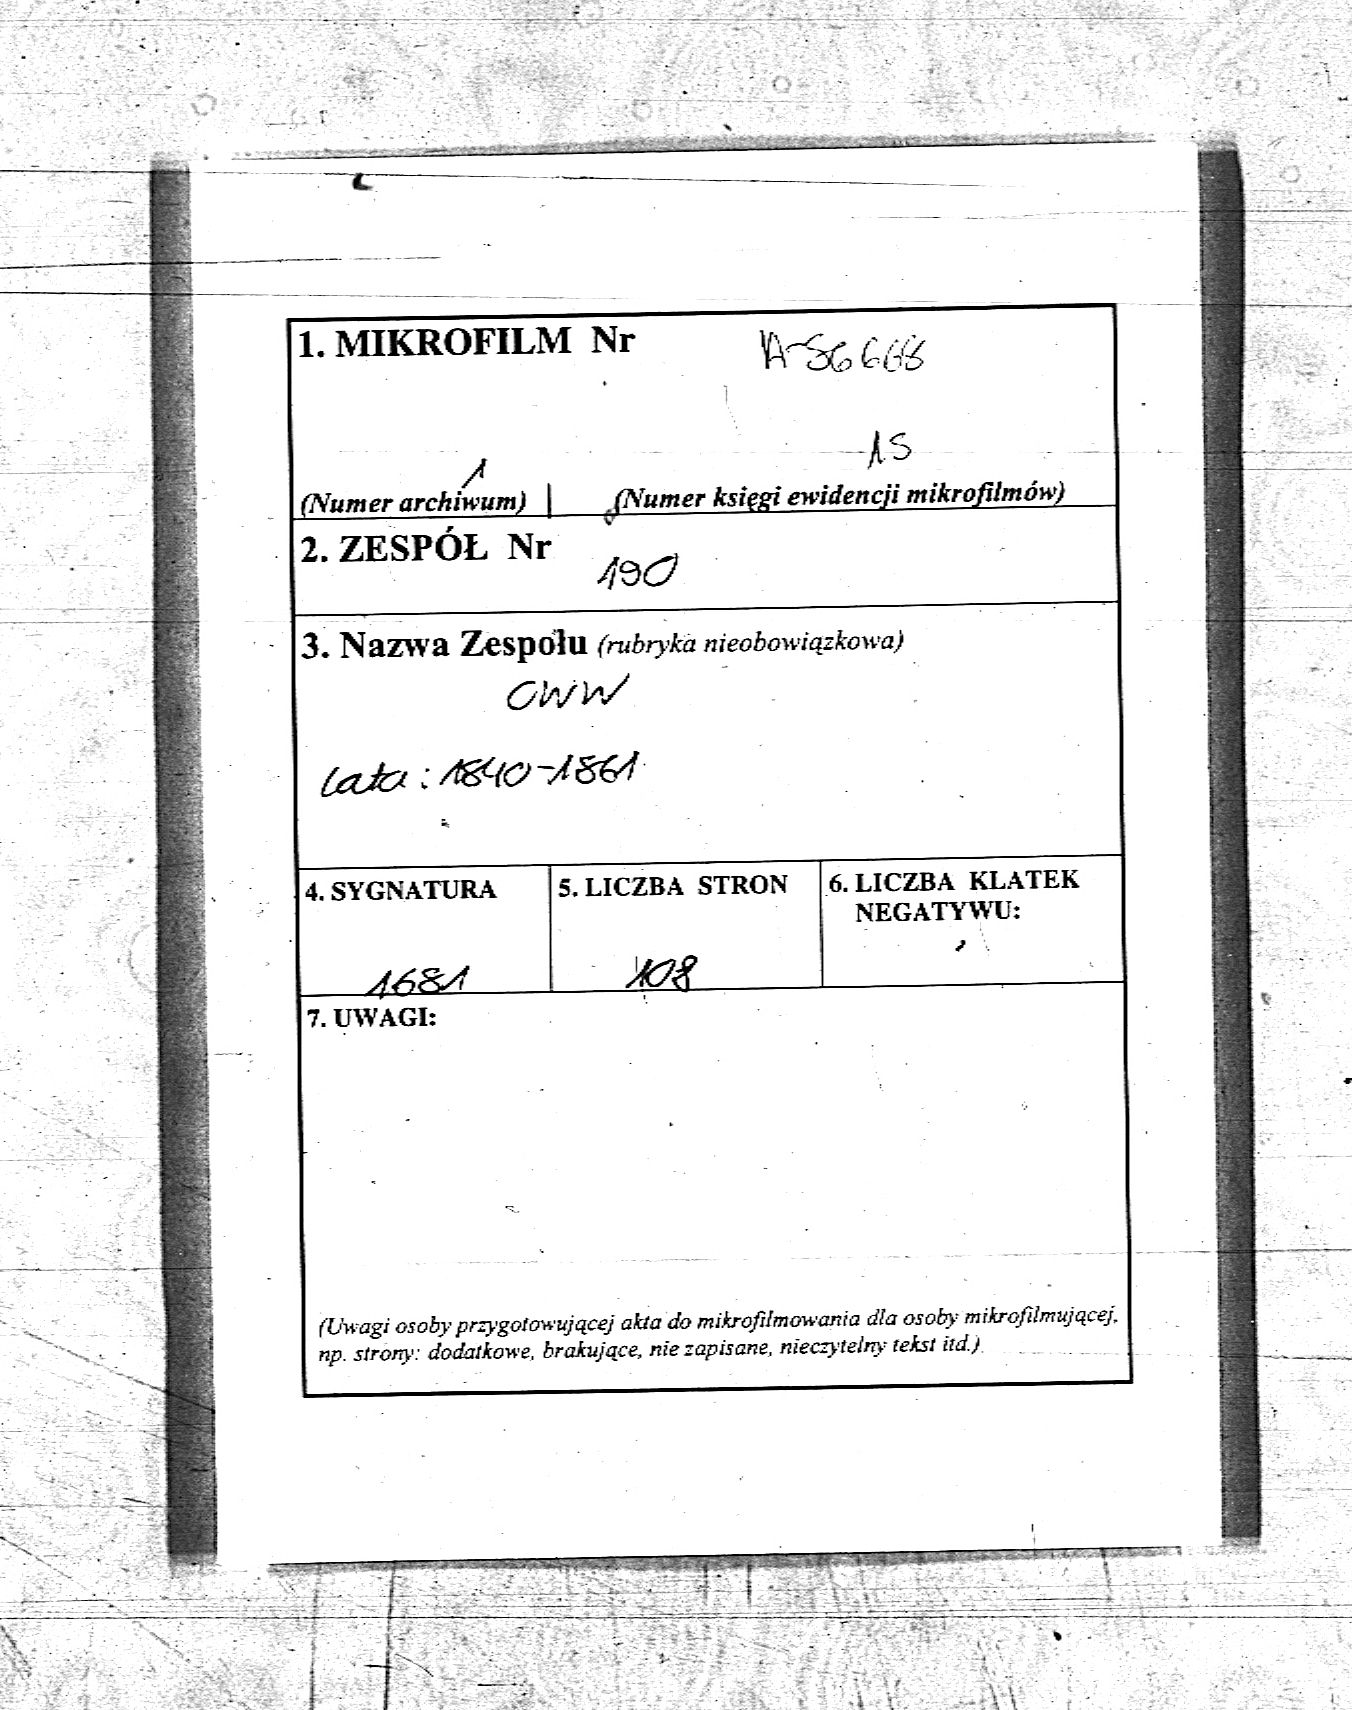 1. MIKROFILM Nr
1
15
(Numer archiwum) | (Numer księgi ewidencji mikrofilmów)
2. ZESPÓŁ Nr
190
3. Nazwa Zespołu (rubryka nieobowiązkowa)
CWW
lata: 1840-1861
4. SYGNATURA
1681
5. LICZBA STRON
108
6. LICZBA KLATEK
NEGATYWU:
7. UWAGI:
(Uwagi osoby przygotowującej akta do mikrofilmowania dla osoby mikrofilmującej,
np. strony: dodatkowe, brakujące, nie zapisane, nieczytelny tekst itd.)